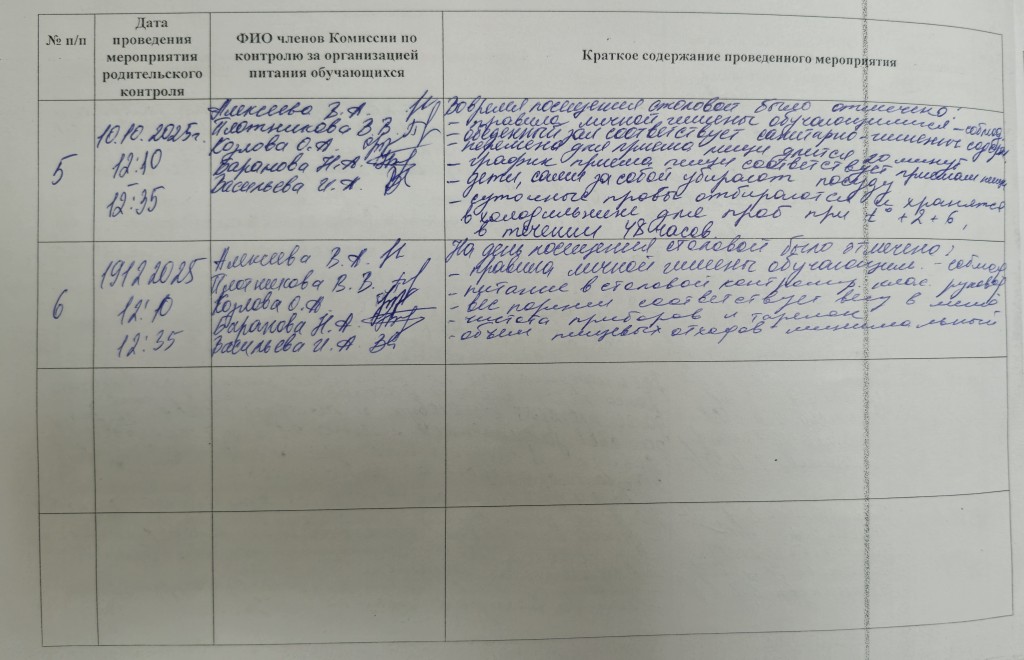 № п/п
Дата
проведения
мероприятия
родительского
контроля
ФИО членов Комиссии по
контролю за организацией
питания обучающихся
Краткое содержание проведенного мероприятия
5
10.10.2025г.
12:10
12:35
Алексеева В.А.
Плотникова В.В.
Козлова О.А.
Баранова Н.А.
Васильева И.А.
Во время посещения столовой было отмечено:
- правила личной гигиены обучающимися - соблюд
- обеденный зал соответствует санитарно-гигиены
- перемена для приема пищи длится 20 минут
- график приема пищи соответствует
- дети, сами за собой убирают посуду
- суточные пробы отбираются и хранятся
в холодильнике для проб при t° +2+6,
в течении 48 часов.
6
19.12 2025
12:10
12:35
Алексеева В.А.
Плотникова В.В.
Козлова О.А.
Баранова Н.А.
Васильева И.А.
На день посещения столовой было отмечено;
- правила личной гигиены обучающим. - соблюд
- питание в столовой контролир. клас. руковод
- вес порции соответствует весу в меню
- чистота приборов и тарелок
- объем пищевых отходов минимальный